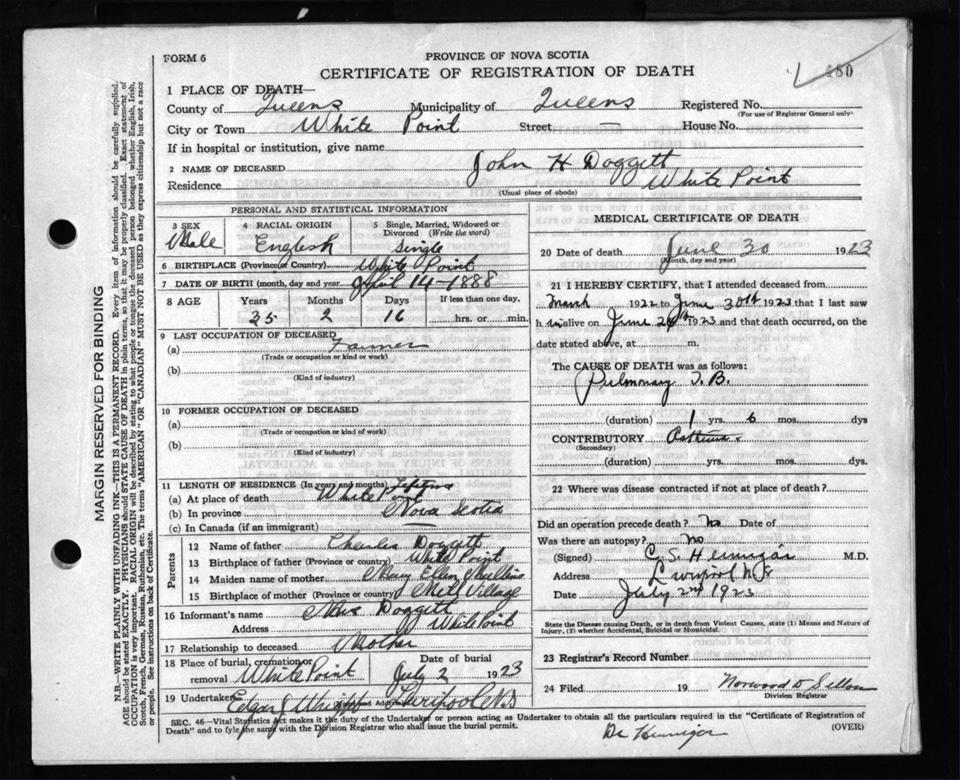 FORM 6
PROVINCE OF NOVA SCOTIA
CERTIFICATE OF REGISTRATION OF DEATH
480
1 PLACE OF DEATH—
County of Queens Municipality of Queens Registered No.
(For use of Registrar General only)
City or Town White Point Street — House No.
If in hospital or institution, give name
2 NAME OF DECEASED John H Doggett
Residence White Point
(Usual place of abode)
PERSONAL AND STATISTICAL INFORMATION
3 SEX Male
4 RACIAL ORIGIN English
5 Single, Married, Widowed or Divorced (Write the word) Single
6 BIRTHPLACE (Province or Country) White Point
7 DATE OF BIRTH (month, day and year) April 14-1888
8 AGE Years Months Days If less than one day,
35 2 16 hrs. or min.
9 LAST OCCUPATION OF DECEASED
(a) Farmer
(Trade or occupation or kind of work)
(b)
(Kind of industry)
10 FORMER OCCUPATION OF DECEASED
(a)
(Trade or occupation or kind of work)
(b)
(Kind of industry)
11 LENGTH OF RESIDENCE (In years and months) Lifetime
(a) At place of death White Point
(b) In province Nova Scotia
(c) In Canada (if an immigrant) —
Parents
12 Name of father Charles Doggett
13 Birthplace of father (Province or country) White Point
14 Maiden name of mother Mary Ellen Mullins
15 Birthplace of mother (Province or country) Mill Village
16 Informant's name Mrs Doggett
Address White Point
17 Relationship to deceased Mother
18 Place of burial, cremation or removal White Point Date of burial July 2 1923
19 Undertaker Edgar J Wright Liverpool NS
MEDICAL CERTIFICATE OF DEATH
20 Date of death June 30 1923
(Month, day and year)
21 I HEREBY CERTIFY, that I attended deceased from
March 1922 to June 30th 1923 that I last saw
h im alive on June 29th 1923 and that death occurred, on the
date stated above, at m.
The CAUSE OF DEATH was as follows:
Pulmonary T.B.
(duration) 1 yrs. 6 mos. dys
CONTRIBUTORY Asthma
(Secondary)
(duration) yrs. mos. dys.
22 Where was disease contracted if not at place of death?
Did an operation precede death? No Date of
Was there an autopsy? No
(Signed) C. S. Hennigar M.D.
Address Liverpool N.S
Date July 2nd 1923
State the Disease causing Death, or in death from Violent Causes, state (1) Means and Nature of
Injury, (2) whether Accidental, Suicidal or Homicidal.
23 Registrar's Record Number
24 Filed 19
Division Registrar
SEC. 46—Vital Statistics Act makes it the duty of the Undertaker or person acting as Undertaker to obtain all the particulars required in the "Certificate of Registration of
Death" and to fyle the same with the Division Registrar who shall issue the burial permit.
(OVER)
Dr Hennigar
MARGIN RESERVED FOR BINDING
N.B.—WRITE PLAINLY WITH UNFADING INK—THIS IS A PERMANENT RECORD. Every item of information should be carefully supplied.
AGE should be stated EXACTLY. PHYSICIANS should STATE CAUSE OF DEATH in plain terms, so that it may be properly classified. Exact statement of
OCCUPATION is very important. RACIAL ORIGIN will be described by stating to what people or tongue the deceased person belonged whether English, Irish,
Scotch, French, German, Russian, Ruthenian, etc. The terms "AMERICAN" OR "CANADIAN" MUST NOT BE USED as they express citizenship but not a race
or people. See instructions on back of Certificate.